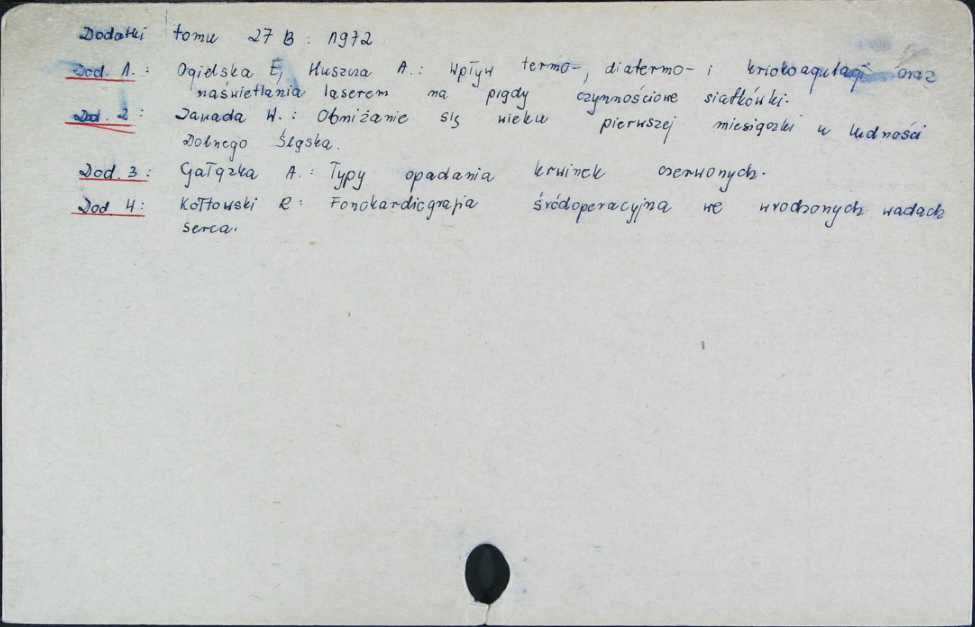 Dodatki tomu 27 B : 1972
Dod. 1. : Ogielska E, Huszcza A. : Wpływ termo-, diatermo- i kriokoagulacji oraz
naświetlania laserem na prądy czynnościowe siatkówki.
Dod. 2 : Zawada W. : Obniżanie się wieku pierwszej miesiączki w ludności
Dolnego Śląska.
Dod. 3 : Gałązka A. : Typy opadania krwinek czerwonych.
Dod 4 : Kotłowski R : Fonokardiografia śródoperacyjna we wrodzonych wadach
serca.